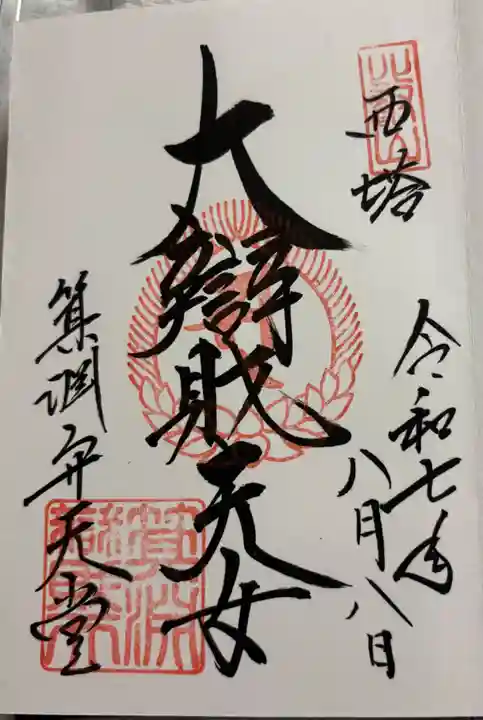 西塔
令和七年
八月八日
大辯財天女
箕淵弁天堂
比叡山